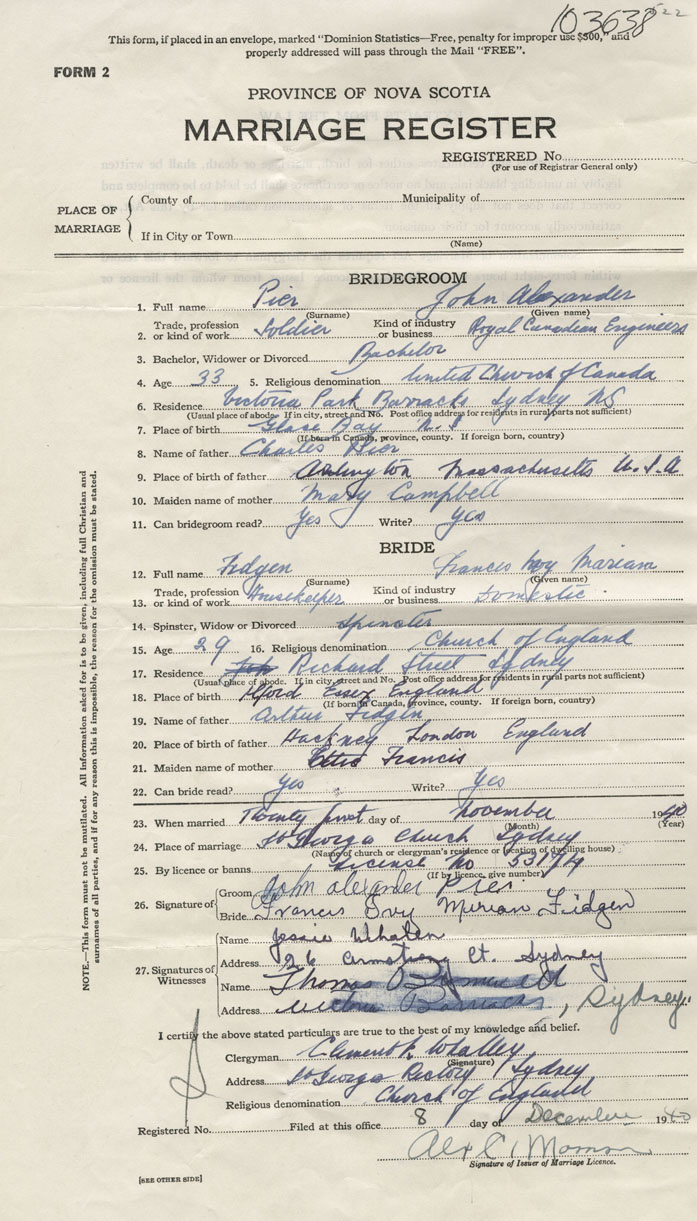 103638 522
This form, if placed in an envelope, marked "Dominion Statistics—Free, penalty for improper use $300," and
properly addressed will pass through the Mail "FREE".
FORM 2
PROVINCE OF NOVA SCOTIA
MARRIAGE REGISTER
REGISTERED No.
(For use of Registrar General only)
PLACE OF MARRIAGE
County of Municipality of
If in City or Town
(Name)
BRIDEGROOM
1. Full name Pier John Alexander
(Surname) (Given name)
2. Trade, profession or kind of work Soldier Kind of industry or business Royal Canadian Engineers
3. Bachelor, Widower or Divorced Bachelor
4. Age 33 5. Religious denomination United Church of Canada
6. Residence Victoria Park Barracks Sydney NS
(Usual place of abode. If in city, street and No. Post office address for residents in rural parts not sufficient)
7. Place of birth Glace Bay N.S
(If born in Canada, province, county. If foreign born, country)
8. Name of father Charles Pier
9. Place of birth of father Arlington Massachusetts U.S.A
10. Maiden name of mother Mary Campbell
11. Can bridegroom read? Yes Write? Yes
BRIDE
12. Full name Fidgen Frances Ivy Mariam
(Surname) (Given name)
13. Trade, profession or kind of work Housekeeper Kind of industry or business Domestic
14. Spinster, Widow or Divorced Spinster
15. Age 29 16. Religious denomination Church of England
17. Residence Richard Street Sydney
(Usual place of abode. If in city, street and No. Post office address for residents in rural parts not sufficient)
18. Place of birth Ilford Essex England
(If born in Canada, province, county. If foreign born, country)
19. Name of father Arthur Fidgen
20. Place of birth of father Hackney London England
21. Maiden name of mother Francis
22. Can bride read? Yes Write? Yes
23. When married Twenty first day of November 1940
(Month) (Year)
24. Place of marriage St Georges Church Sydney
(Name of church or clergyman's residence or location of dwelling house)
25. By licence or banns Licence No
(If by licence, give number)
26. Signature of
Groom John Alexander Pier
Bride Frances Ivy Meriam Fidgen
27. Signatures of Witnesses
Name Jessie Whalen
Address 26 Armstrong Ct. Sydney
Name Thomas
Address Victoria Barracks, Sydney
I certify the above stated particulars are true to the best of my knowledge and belief.
Clergyman Clement Whalley
(Signature)
Address St Georges Rectory Sydney
Religious denomination Church of England
Registered No. Filed at this office 8 day of December 1940
Signature of Issuer of Marriage Licence.
[SEE OTHER SIDE]
NOTE.—This form must not be mutilated. All information asked for is to be given, including full Christian and
surnames of all parties, and if for any reason this is impossible, the reason for the omission must be stated.